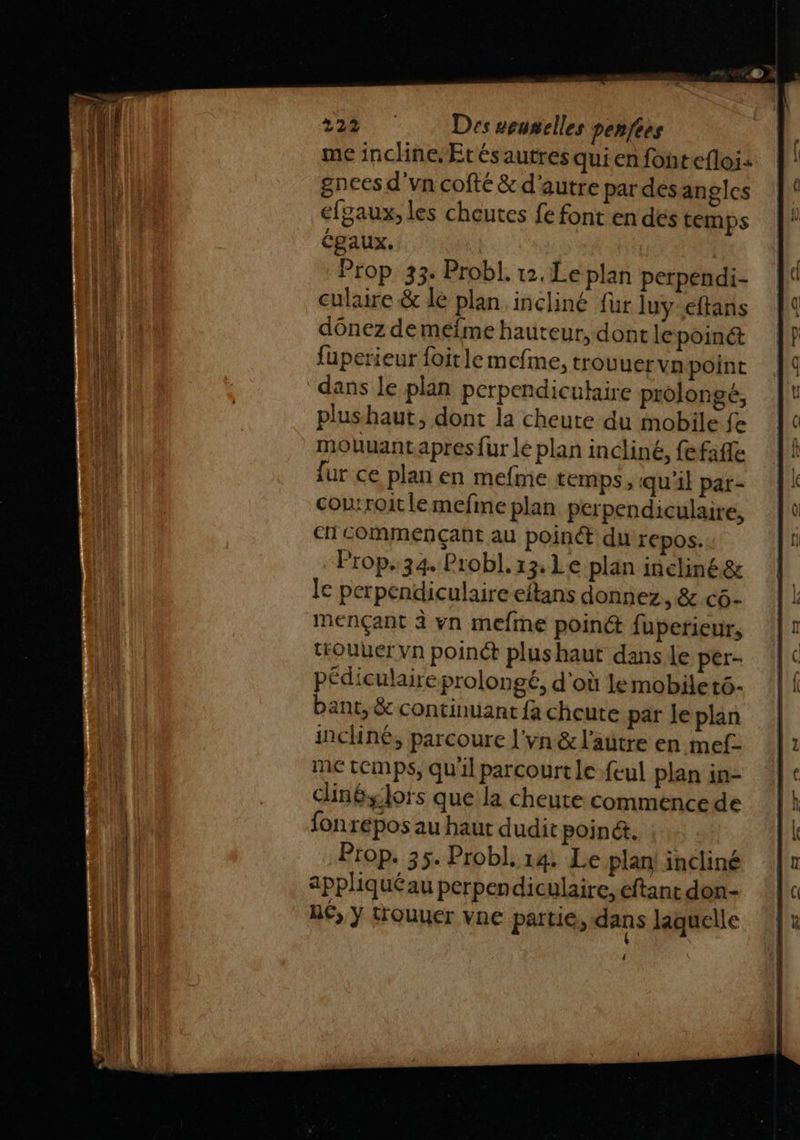 222 Des nouuelles penſées
me incline. Et és autres qui en ſont eſloi-
gnees d'vn coſté & d'autre par des angles
eſgaux, les cheutes ſe font en des temps
égaux.
Prop 33. Probl. 12. Le plan perpendi-
culaire & le plan incliné ſur luy eſtans
dōnez de meſme hauteur, dont le poinct
ſuperieur ſoit le meſme, trouuer vn point
dans le plan perpendiculaire prolongé,
plus haut, dont la cheute du mobile ſe
mouuant apres ſur le plan incliné, ſe faſſe
ſur ce plan en meſme temps, qu'il par-
courroit le meſme plan perpendiculaire,
en commençant au poinct du repos.
Prop. 34. Probl. 13. Le plan incliné &
le perpendiculaire eſtans donnez, & cō-
mençant à vn meſme poinct ſuperieur,
trouuer vn poinct plus haut dans le per-
pēdiculaire prolongé, d'où le mobile tō-
bant, & continuant ſa cheute par le plan
incliné, parcoure l'vn & l'autre en meſ-
me temps, qu'il parcourt le ſeul plan in-
cliné, lors que la cheute commence de
ſon repos au haut dudit poinct.
Prop. 35. Probl. 14. Le plan incliné
appliqué au perpendiculaire, eſtant don-
né, y trouuer vne partie, dans laquelle